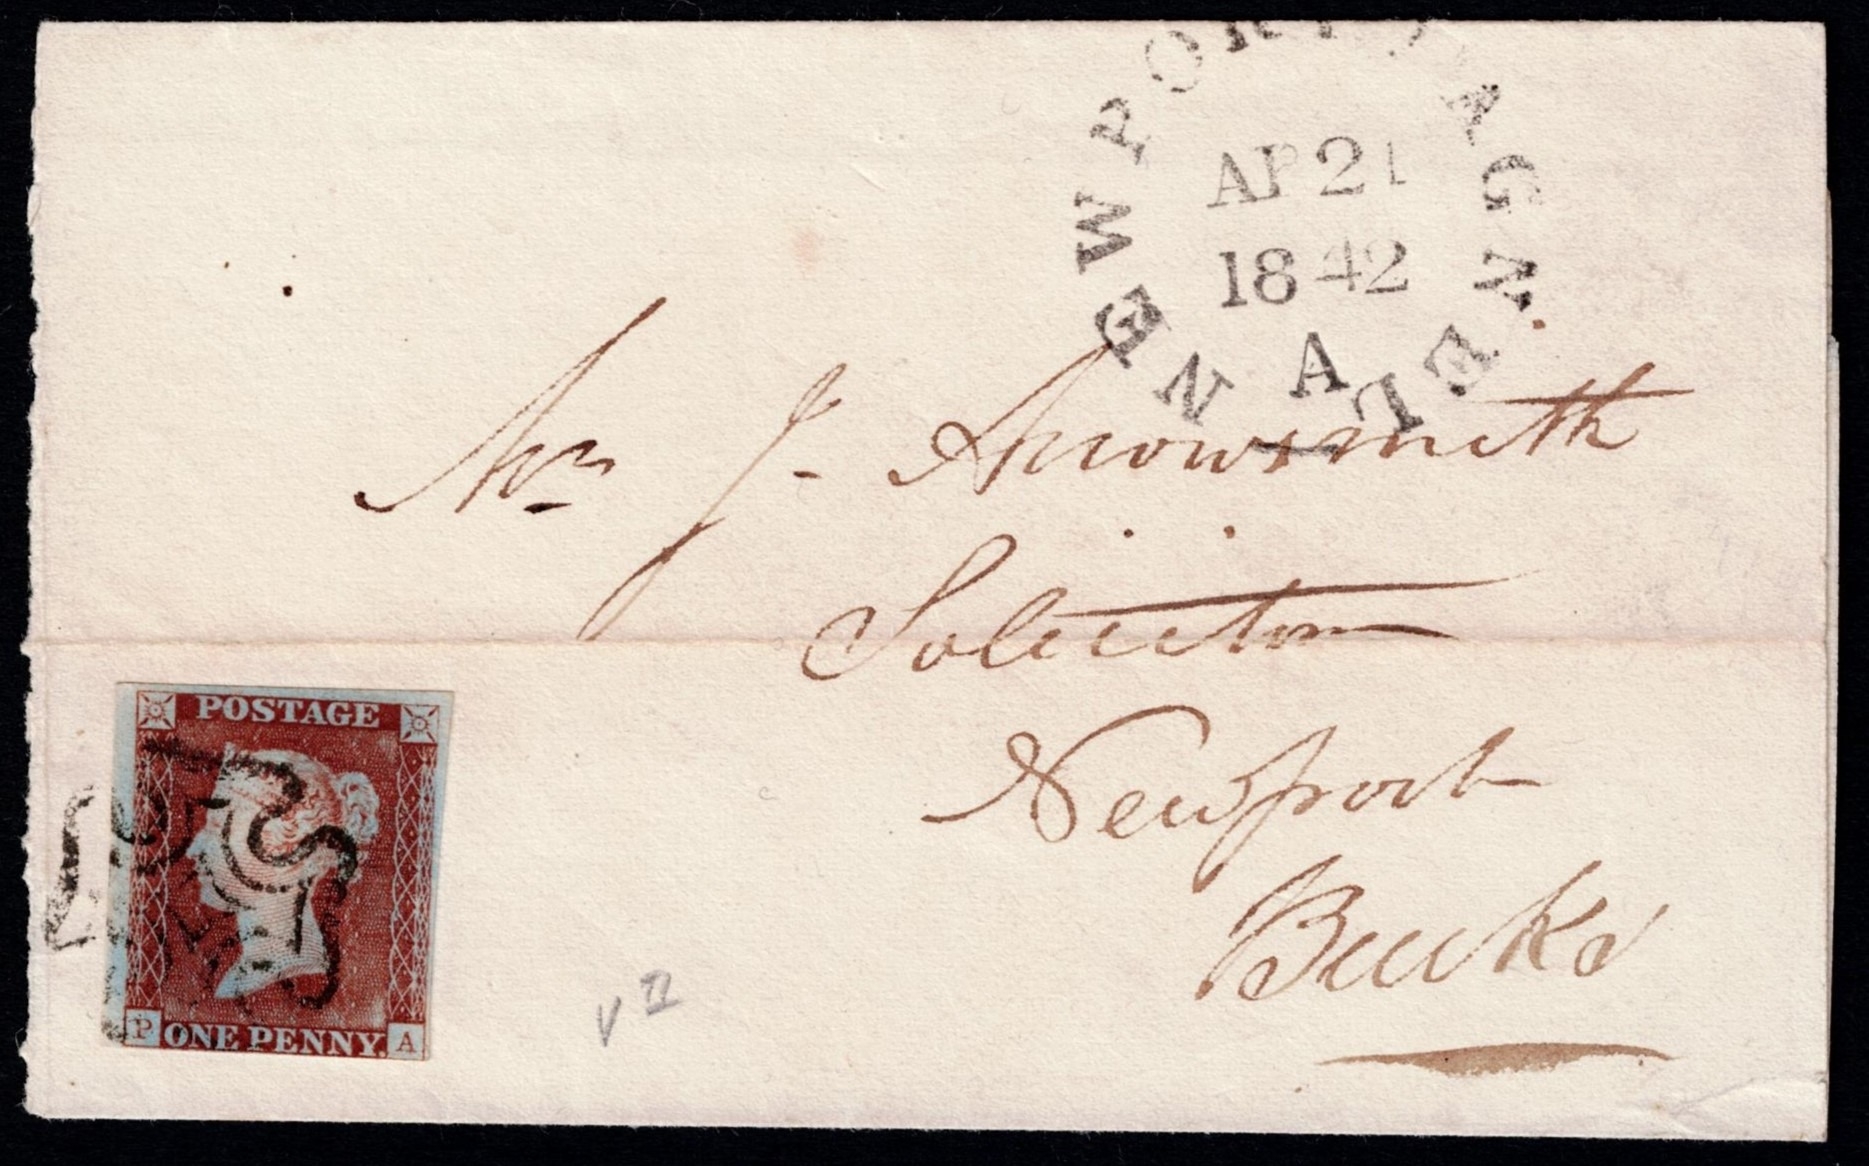 NEWPORT PAGNELL
AP 21
1842
A
Mr J- Arrowsmith
Solicitor
Newport
Bucks
POSTAGE
P ONE PENNY. A
V II